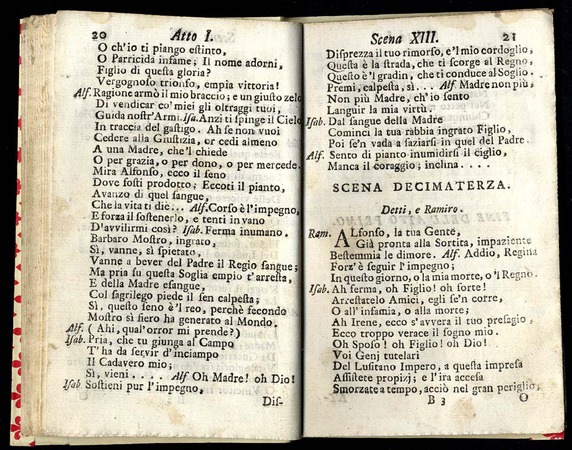 20 Atto I.
O ch'io ti piango estinto,
O Parricida infame; Il nome adorni,
Figlio di questa gloria?
Vergognoso trionfo, empia vittoria!
Alf. Ragione armò il mio braccio; e un giusto zelo
Di vendicar co' miei gli oltraggi tuoi,
Guida nostr'Armi. Isa. Anzi ti spinge il Cielo
In traccia del gastigo. Ah se non vuoi
Cedere alla Giustizia, or cedi almeno
A una Madre, che'l chiede
O per grazia, o per dono, o per mercede.
Mira Alfonso, ecco il seno
Dove fosti prodotto; Eccoti il pianto,
Avanzo di quel sangue,
Che la vita ti diè... Alf. Corso è l'impegno,
E forza il sostenerlo, e tenti in vano
D'avvilirmi così? Isab. Ferma inumano.
Barbaro Mostro, ingrato,
Sì, vanne, sì spietato,
Vanne a bever del Padre il Regio sangue;
Ma pria su questa Soglia empio t'arresta,
E della Madre esangue,
Col sagrilego piede il sen calpesta;
Sì, questo seno è'l reo, perchè fecondo
Mostro sì fiero ha generato al Mondo.
Alf. ( Ahi, qual'orror mi prende?)
Isab. Pria, che tu giunga al Campo
T'ha da servir d'inciampo
Il Cadavero mio;
Sì, vieni..... Alf Oh Madre! oh Dio!
Isab Sostieni pur l'impegno,
Dis-
Scena XIII. 21
Disprezza il tuo rimorso, e'l mio cordoglio,
Questa è la strada, che ti scorge al Regno,
Questo è'l gradin, che ti conduce al Soglio.
Premi, calpesta, sì.... Alf Madre non più,
Non più Madre, ch'io sento
Languir la mia virtù.
Isab. Dal sangue della Madre
Cominci la tua rabbia ingrato Figlio,
Poi se'n vada a saziarsi in quel del Padre.
Alf. Sento di pianto inumidirsi il ciglio,
Manca il coraggio; inclina....
SCENA DECIMATERZA.
Detti, e Ramiro.
Ram. ALfonso, la tua Gente,
Già pronta alla Sortita, impaziente
Bestemmia le dimore. Alf. Addio, Regina
Forz'è seguir l'impegno;
In questo giorno, o la mia morte, o'l Regno.
Isab. Ah ferma, oh Figlio! oh forte!
Arrestatelo Amici, egli se'n corre,
O all'infamia, o alla morte;
Ah Irene, ecco s'avvera il tuo presagio,
Ecco troppo verace il sogno mio.
Oh Sposo! oh Figlio! oh Dio!
Voi Genj tutelari
Del Lusitano Impero, a questa impresa
Assistere propizj; e l'ira accesa
Smorzate a tempo, acciò nel gran periglio,
B 3 O